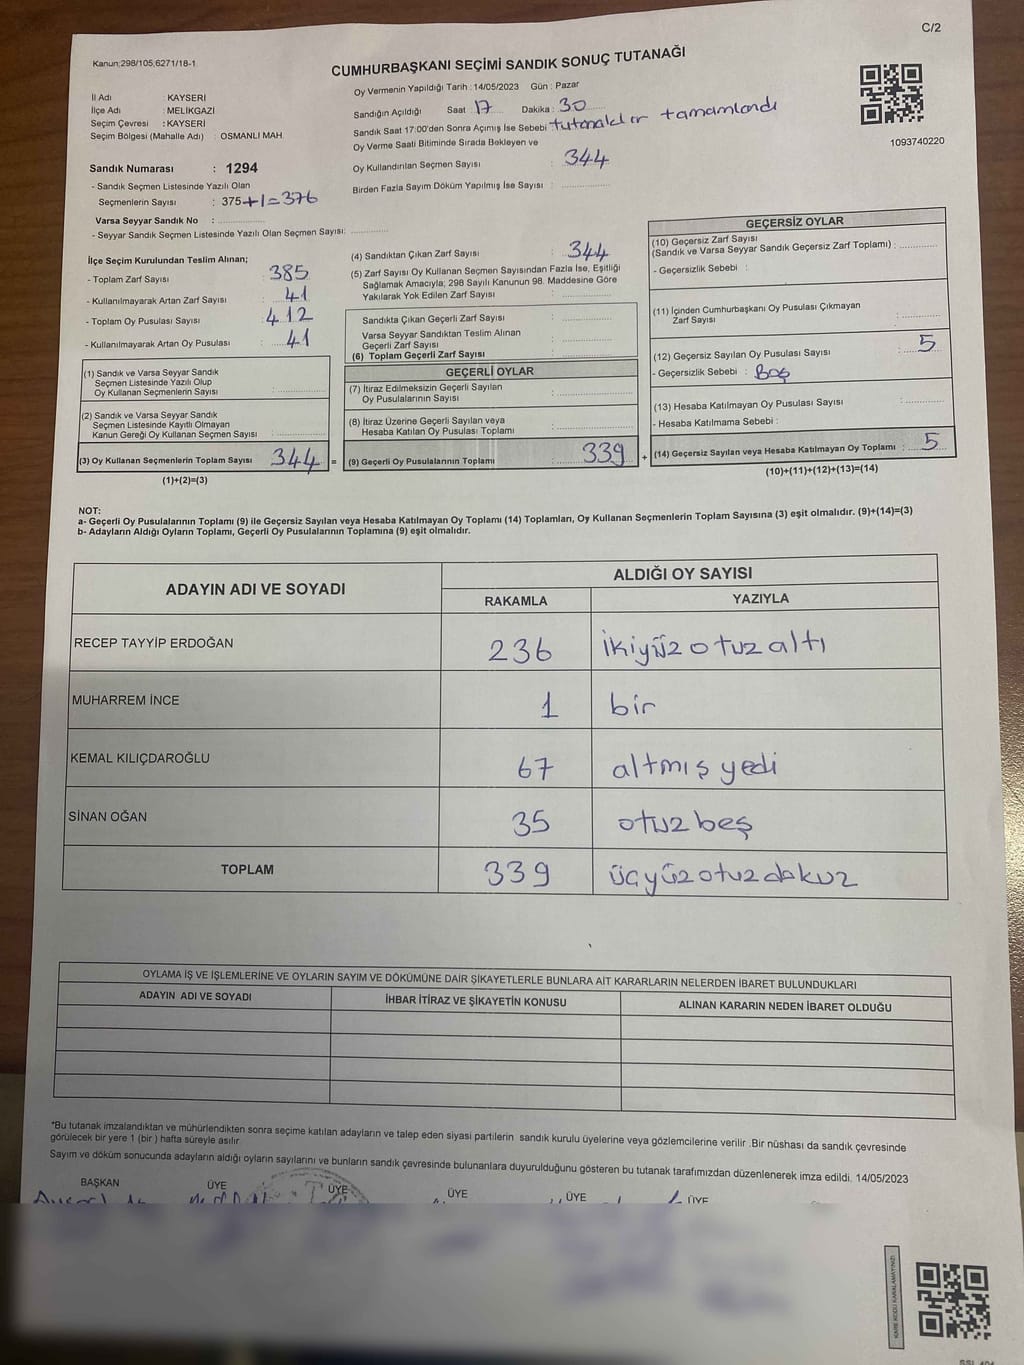 C/2
Kanun;298/105,6271/18-1
CUMHURBAŞKANI SEÇİMİ SANDIK SONUÇ TUTANAĞI
Oy Vermenin Yapıldığı Tarih : 14/05/2023 Gün : Pazar
İl Adı : KAYSERİ
İlçe Adı : MELİKGAZİ
Seçim Çevresi : KAYSERİ
Seçim Bölgesi (Mahalle Adı) : OSMANLI MAH.
Sandığın Açıldığı Saat : 17 Dakika : 30
Sandık Saat 17:00'den Sonra Açımış İse Sebebi tutanaklar tamamlandı
Oy Verme Saati Bitiminde Sırada Bekleyen ve
Oy Kullandırılan Seçmen Sayısı : 344
Birden Fazla Sayım Döküm Yapılmış İse Sayısı :
1093740220
Sandık Numarası : 1294
- Sandık Seçmen Listesinde Yazılı Olan
Seçmenlerin Sayısı : 375+1=376
Varsa Seyyar Sandık No :
- Seyyar Sandık Seçmen Listesinde Yazılı Olan Seçmen Sayısı:
İlçe Seçim Kurulundan Teslim Alınan;
- Toplam Zarf Sayısı : 385
- Kullanılmayarak Artan Zarf Sayısı : 41
- Toplam Oy Pusulası Sayısı : 412
- Kullanılmayarak Artan Oy Pusulası : 41
(1) Sandık ve Varsa Seyyar Sandık
Seçmen Listesinde Yazılı Olup
Oy Kullanan Seçmenlerin Sayısı :
(2) Sandık ve Varsa Seyyar Sandık
Seçmen Listesinde Kayıtlı Olmayan
Kanun Gereği Oy Kullanan Seçmen Sayısı :
(3) Oy Kullanan Seçmenlerin Toplam Sayısı 344 =
(1)+(2)=(3)
(4) Sandıktan Çıkan Zarf Sayısı : 344
(5) Zarf Sayısı Oy Kullanan Seçmen Sayısından Fazla İse, Eşitliği
Sağlamak Amacıyla; 298 Sayılı Kanunun 98. Maddesine Göre
Yakılarak Yok Edilen Zarf Sayısı :
Sandıkta Çıkan Geçerli Zarf Sayısı :
Varsa Seyyar Sandıktan Teslim Alınan
Geçerli Zarf Sayısı :
(6) Toplam Geçerli Zarf Sayısı :
GEÇERLİ OYLAR
(7) İtiraz Edilmeksizin Geçerli Sayılan
Oy Pusulalarının Sayısı :
(8) İtiraz Üzerine Geçerli Sayılan veya
Hesaba Katılan Oy Pusulası Toplamı :
(9) Geçerli Oy Pusulalarının Toplamı : 339 +
GEÇERSİZ OYLAR
(10) Geçersiz Zarf Sayısı
(Sandık ve Varsa Seyyar Sandık Geçersiz Zarf Toplamı) :
- Geçersizlik Sebebi :
(11) İçinden Cumhurbaşkanı Oy Pusulası Çıkmayan
Zarf Sayısı :
(12) Geçersiz Sayılan Oy Pusulası Sayısı : 5
- Geçersizlik Sebebi : Boş
(13) Hesaba Katılmayan Oy Pusulası Sayısı :
- Hesaba Katılmama Sebebi :
(14) Geçersiz Sayılan veya Hesaba Katılmayan Oy Toplamı : 5
(10)+(11)+(12)+(13)=(14)
NOT:
a- Geçerli Oy Pusulalarının Toplamı (9) ile Geçersiz Sayılan veya Hesaba Katılmayan Oy Toplamı (14) Toplamları, Oy Kullanan Seçmenlerin Toplam Sayısına (3) eşit olmalıdır. (9)+(14)=(3)
b- Adayların Aldığı Oyların Toplamı, Geçerli Oy Pusulalarının Toplamına (9) eşit olmalıdır.
ADAYIN ADI VE SOYADI ALDIĞI OY SAYISI
RAKAMLA YAZIYLA
RECEP TAYYİP ERDOĞAN 236 ikiyüz otuz altı
MUHARREM İNCE 1 bir
KEMAL KILIÇDAROĞLU 67 altmış yedi
SİNAN OĞAN 35 otuz beş
TOPLAM 339 üçyüz otuz dokuz
OYLAMA İŞ VE İŞLEMLERİNE VE OYLARIN SAYIM VE DÖKÜMÜNE DAİR ŞİKAYETLERLE BUNLARA AİT KARARLARIN NELERDEN İBARET BULUNDUKLARI
ADAYIN ADI VE SOYADI İHBAR İTİRAZ VE ŞİKAYETİN KONUSU ALINAN KARARIN NEDEN İBARET OLDUĞU
*Bu tutanak imzalandıktan ve mühürlendikten sonra seçime katılan adayların ve talep eden siyasi partilerin sandık kurulu üyelerine veya gözlemcilerine verilir .Bir nüshası da sandık çevresinde
görülecek bir yere 1 (bir ) hafta süreyle asılır.
Sayım ve döküm sonucunda adayların aldığı oyların sayılarını ve bunların sandık çevresinde bulunanlara duyurulduğunu gösteren bu tutanak tarafımızdan düzenlenerek imza edildi. 14/05/2023
BAŞKAN ÜYE ÜYE ÜYE ÜYE ÜYE
KARE KODU KARALAMAYINIZ!